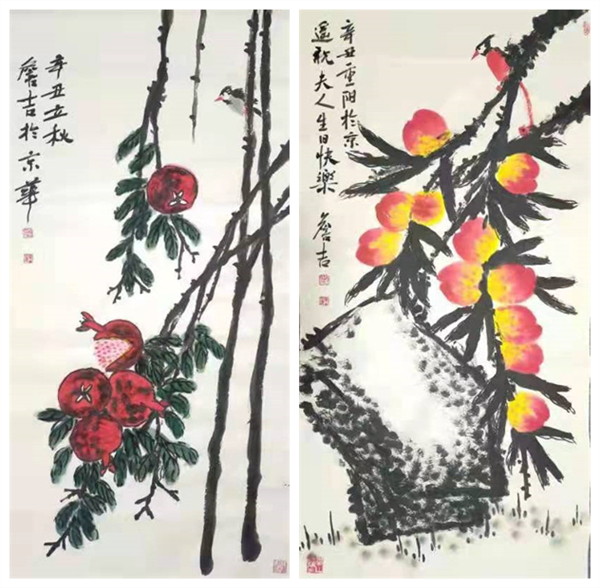 辛丑立秋
詹吉於京華
辛丑重阳於京
遥祝夫人生日快樂
詹吉